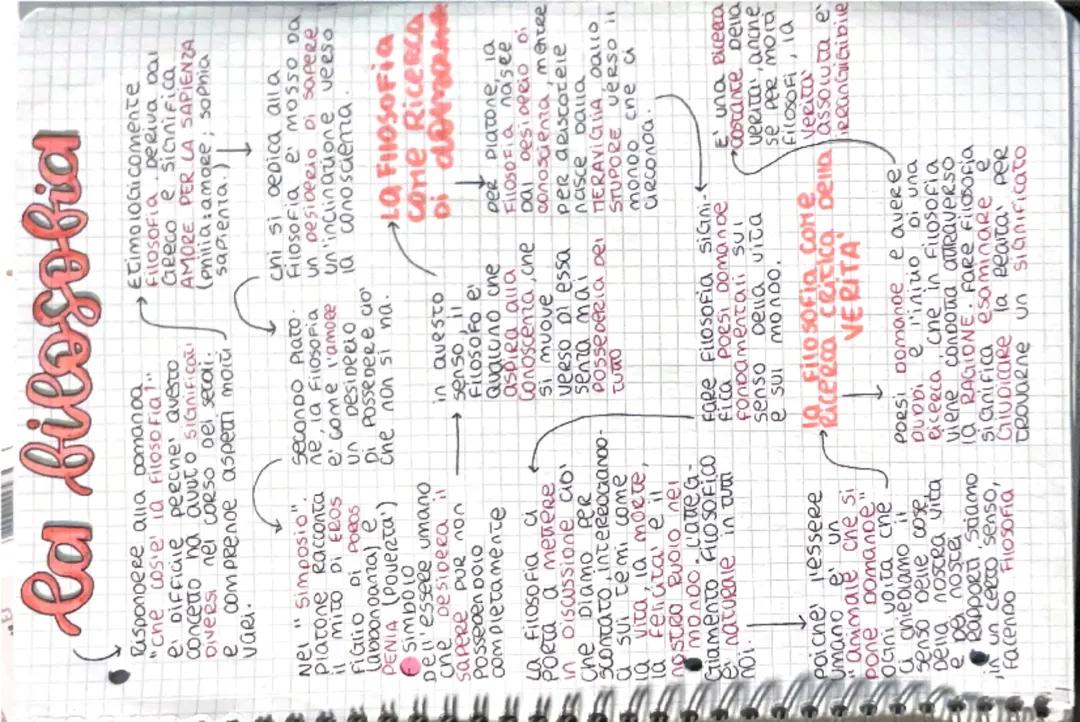 la filosofia
Rispondere alla domanda
"che cos'e' la filosofia?"
e' difficile perche' questo
concetto ha avuto significati
diversi nel corso dei secoli
e comprende aspetti molti
vari.
Etimologicamente
filosofia deriva dal
greco e significa
AMORE PER LA SAPIENZA
(philia: amore; sophia
sapienza.)
chi si dedica alla
filosofia e' mosso da
un desiderio di sapere
un'inclinazione verso
la conoscienza.
secondo Plato-
ne la filosofia
e' come l'amore
un desiderio
di possedere cio'
che non si ha.
Nel "Simposio".
Platone racconta
il mito di EROS
figlio di POROS
(abbondanza) e
PENIA (Poverta')
simbolo
dell'essere umano
che desidera il
sapere pur non
possedendolo
completamente
in questo
senso, il
filosofo e'
qualcuno che
aspira alla
conoscenza, che
si muove
verso di essa
senza mai
possederla del
tutto
LA FILOSOFIA
COME RICERCA
DI
per Platone, la
filosofia nasce
dal desiderio di
conoscienza, mentre
per Aristotele
nasce dalla
MERAVIGLIA dallo
STUPORE verso il
mondo che ci
circonda.
Fare filosofia signi-
fica porsi domande
fondamentali sul
senso della vita
e sul mondo.
La filosofia ci
porta a mettere
in discussione cio'
che diamo per
scontato, interrogando-
ci sui temi come
la vita, la morte,
la felicita' e il
nostro ruolo nel
mondo. L'atteg-
giamento filosofico
e' naturale in tutti
noi.
poiche' l'essere
umano e' un
"animale che si
pone domande"
ogni volta che
ci chiediamo il
senso delle cose
della nostra vita
e dei nostri
rapporti stiamo
, in un certo senso,
facendo filosofia,
la filosofia come
Ricerca critica della
VERITA'
PORSI domande e avere
DUBBI e' l'inizio di una
ricerca, che in filosofia
viene condotta attraverso
la RAGIONE. fare filosofia
significa esaminare e
GIUDICARE la realta' per
TROVARNE UN SIGNIFICATO
E' una ricerca
costante della
verita', anche
se per molti
filosofi, la
verita'
assoluta e'
irraggiungibile